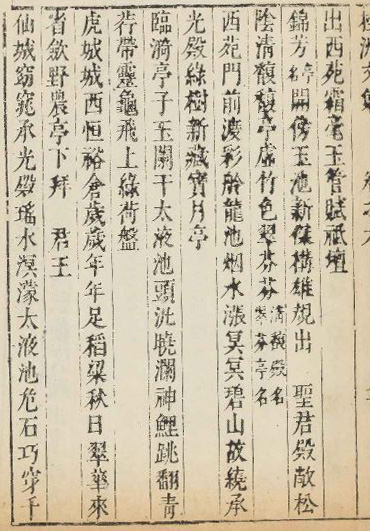 出西苑霜毫玉管賦祗壇
錦芳亭名開傍玉池新傑構雄規出 聖君殿敞松
陰清馥馥亭虛竹色翠芬芬清馥殿名翠芬亭名
西苑門前渡彩舲龍池烟水漲冥冥碧山故繞承
光殿綠樹新藏寶月亭
臨漪亭子玉闌干太液池頭洗曉瀾神鯉跳翻青
荇帶靈龜飛上綠荷盤
虎城城西恒裕倉歲歲年年足稻粱秋日翠華來
省斂野農亭下拜 君王
仙城窈窕承光殿瑤水溟濛太液池危石巧穿千